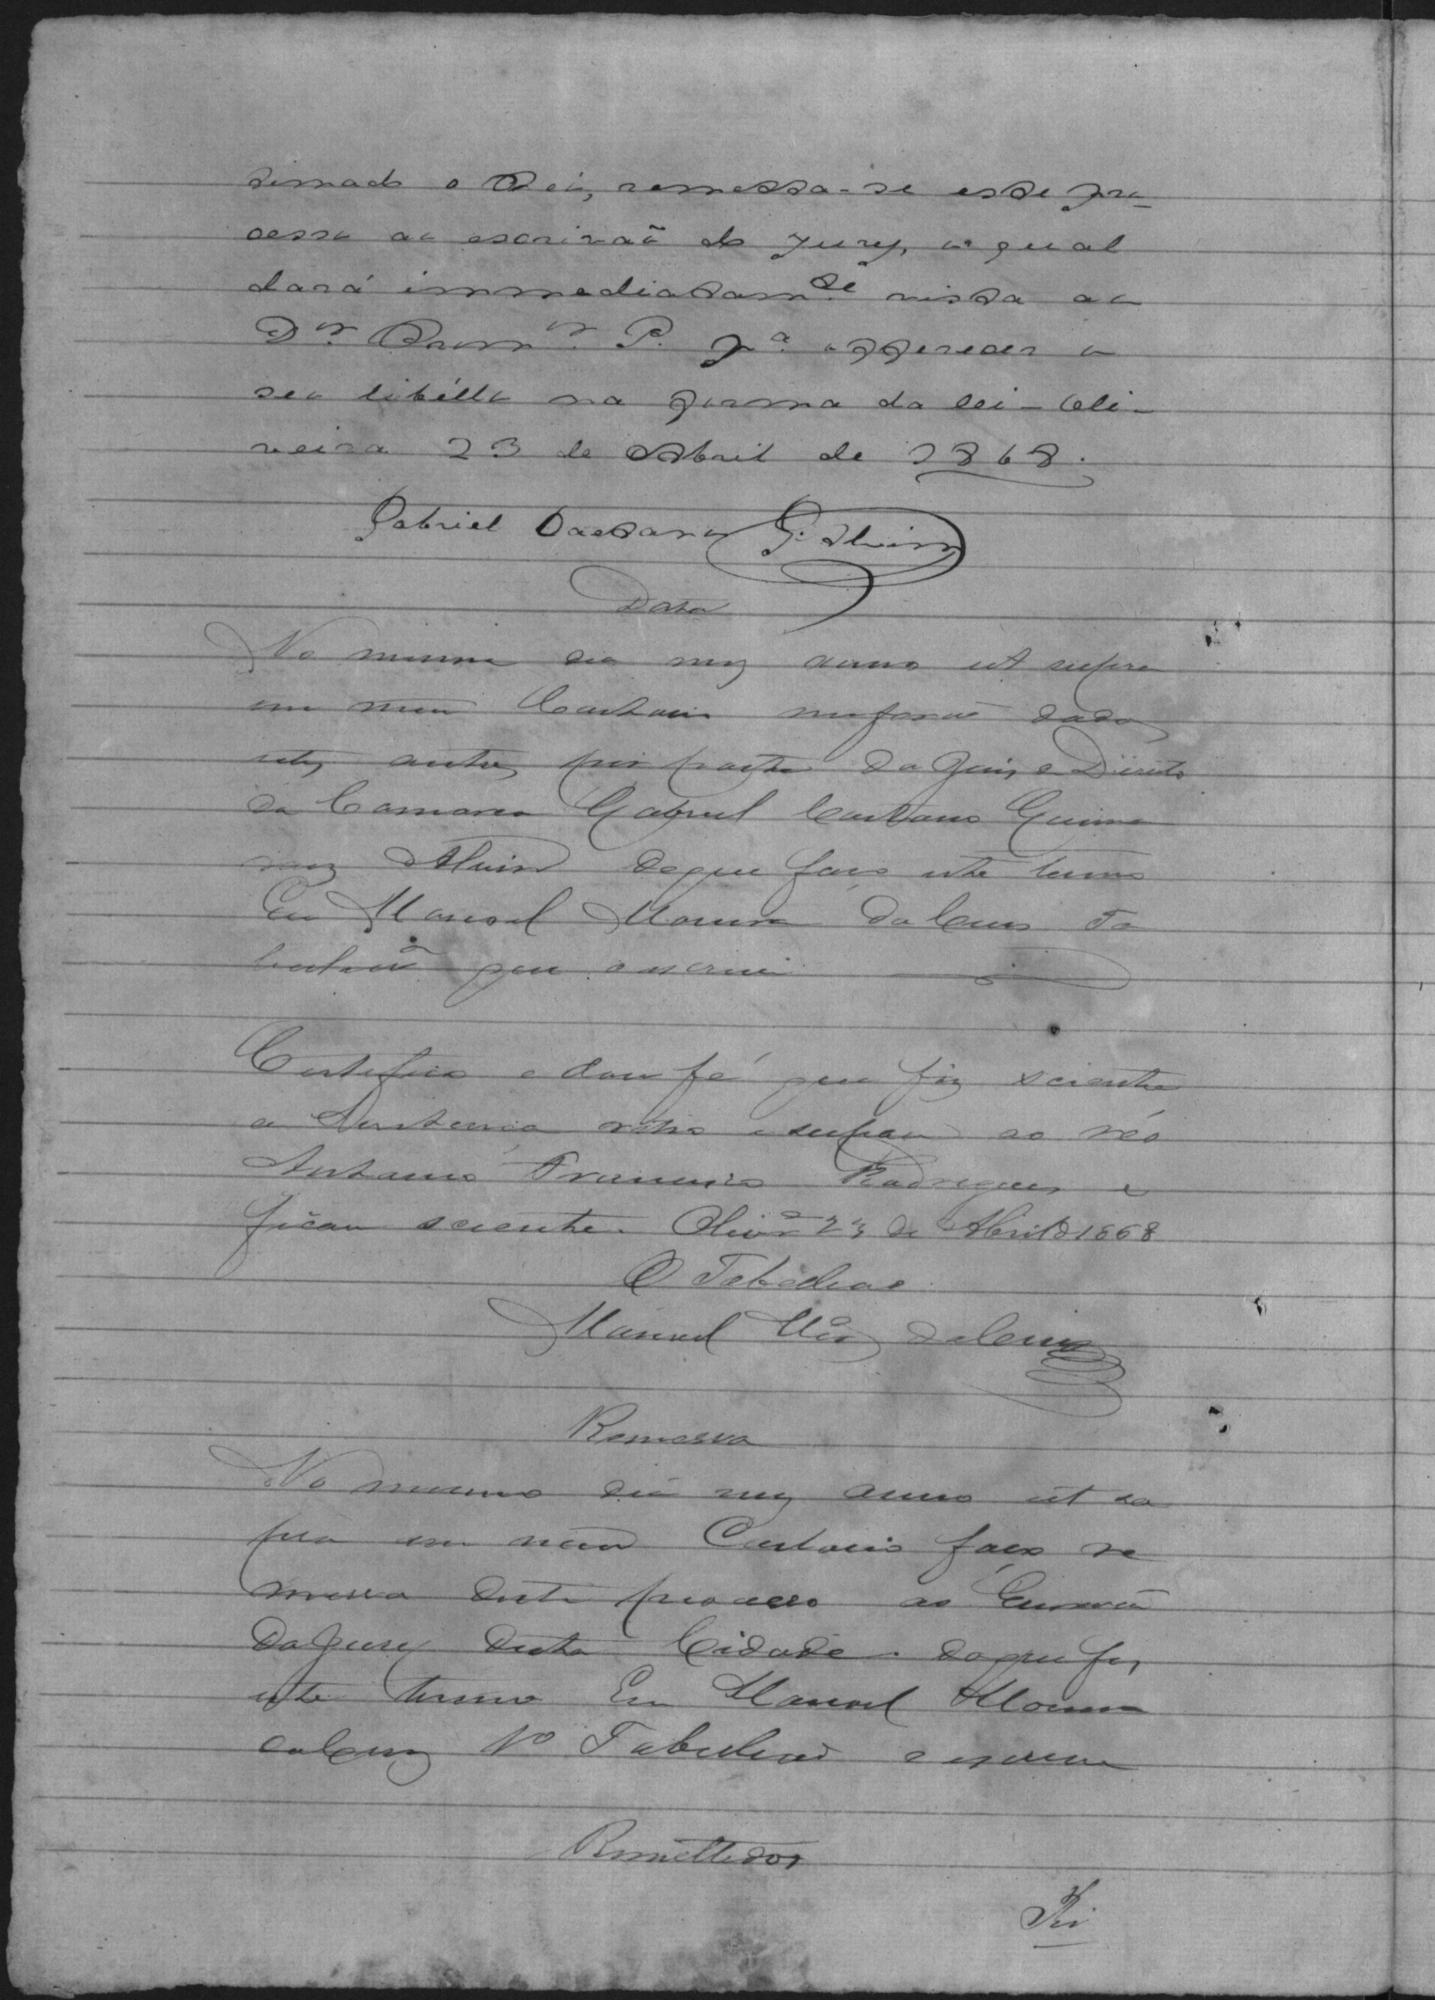 timado o Reu, remetta-se este pro-
cesso ao escrivaõ do Jury, o qual
dará immediatam.te vista ao
D.or Prom.or P. p.a offerecer o
seu libéllo na forma da lei – Oli-
veira 23 de Abril de 1868.
Gabriel Caetano G. Alvim
Data
No mesmo dia mez anno ut supra
em meu Cartorio me foraõ dados
estes autos por parte do Juis de Direito
da Comarca Gabriel Caetano Guima
Alvim do que faço este termo
Eu Manoel Moreira da Crus Ta
belliaõ que o escrevi
Certifico e dou fé que fiz sciente
a Sentença retro e supra ao réo
Antonio Francisco Rodrigues e
ficou sciente. Olivr.a 23 de Abril d 1868
O Tabelliao
Manoel Mra da Crus
Remessa
No mesmo dia mez anno ut su
pra em meu Cartorio faço re
messa deste processo ao Escrivaõ
do Jury desta Cidade do que fis
este termo Eu Manoel Moreira
da Cruz 1º Tabelliaõ o escrevi
Remettidos